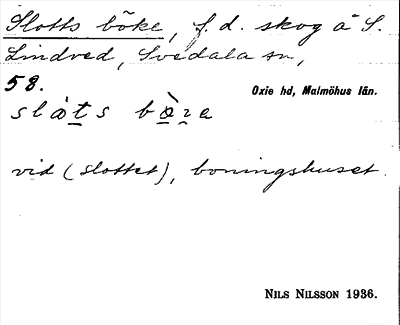 Slotts böke, f.d. skog å S.
Lindved, Svedala sn,
58.
Oxie hd, Malmöhus län.
vid (slottet), boningshuset.
NILS NILSSON 1936.